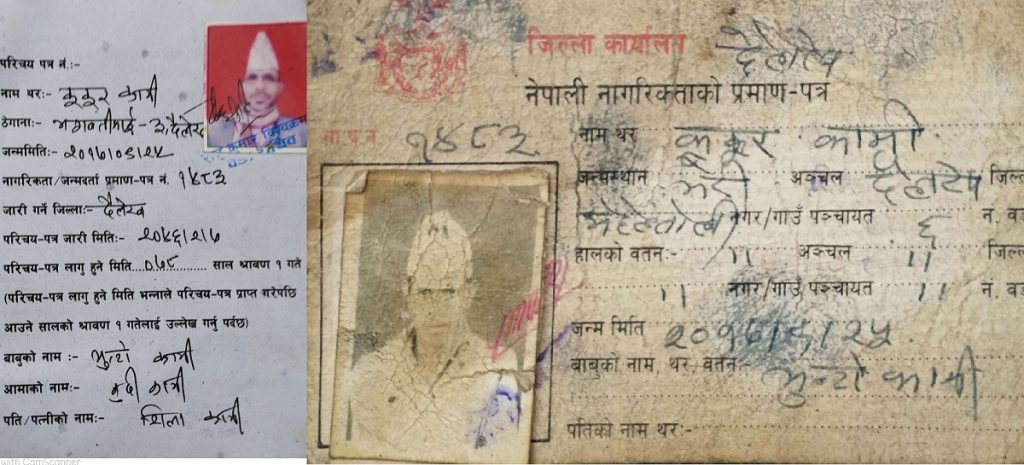 परिचय पत्र नं.:-
नाम थर:- कुकुर कामी
ठेगाना:- भगवतीमाई - ३, दैलेख
जन्ममिति:-
नागरिकता/जन्मदर्ता प्रमाण-पत्र नं. १४८३
जारी गर्ने जिल्ला:- दैलेख
परिचय-पत्र जारी मिति:-
परिचय-पत्र लागु हुने मिति...०७८.......... साल श्रावण १ गते
(परिचय-पत्र लागु हुने मिति भन्नाले परिचय-पत्र प्राप्त गरेपछि
आउने सालको श्रावण १ गतेलाई उल्लेख गर्नु पर्दछ)
बाबुको नाम :- भुन्टो कामी
आमाको नाम:- कामी
पति/पत्नीको नाम:- शिला कामी
with CamScanner
जिल्ला कार्यालय दैलेख
नेपाली नागरिकताको प्रमाण-पत्र
ना.प्र.न. १४८३
नाम थर कुकुर कामी
जन्मस्थान भेरी अञ्चल दैलेख जिल्
नगर/गाउँ पञ्चायत ६ नं. वड
हालको वतन:- ,, अञ्चल ,, जिल्
,, नगर/गाउँ पञ्चायत ,, नं. वड
जन्म मिति
बाबुको नाम, थर, वतन:- भुन्टो कामी
पतिको नाम थर:-